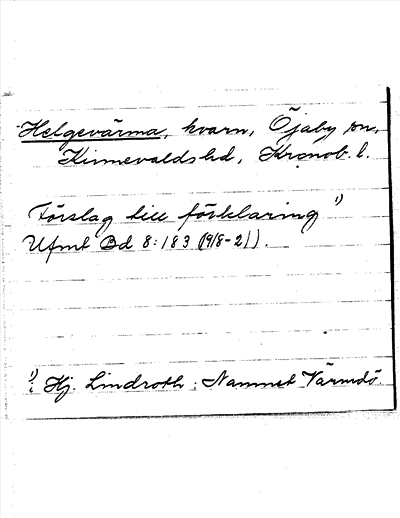 Helgevärma, kvarn, Öjaby sn,
Kinnevalds hd, Kronob. l.
Förslag till förklaring ¹)
Ufmt Bd 8:183 (918-21).
¹) Hj. Lindroth: Namnet Värmdö.